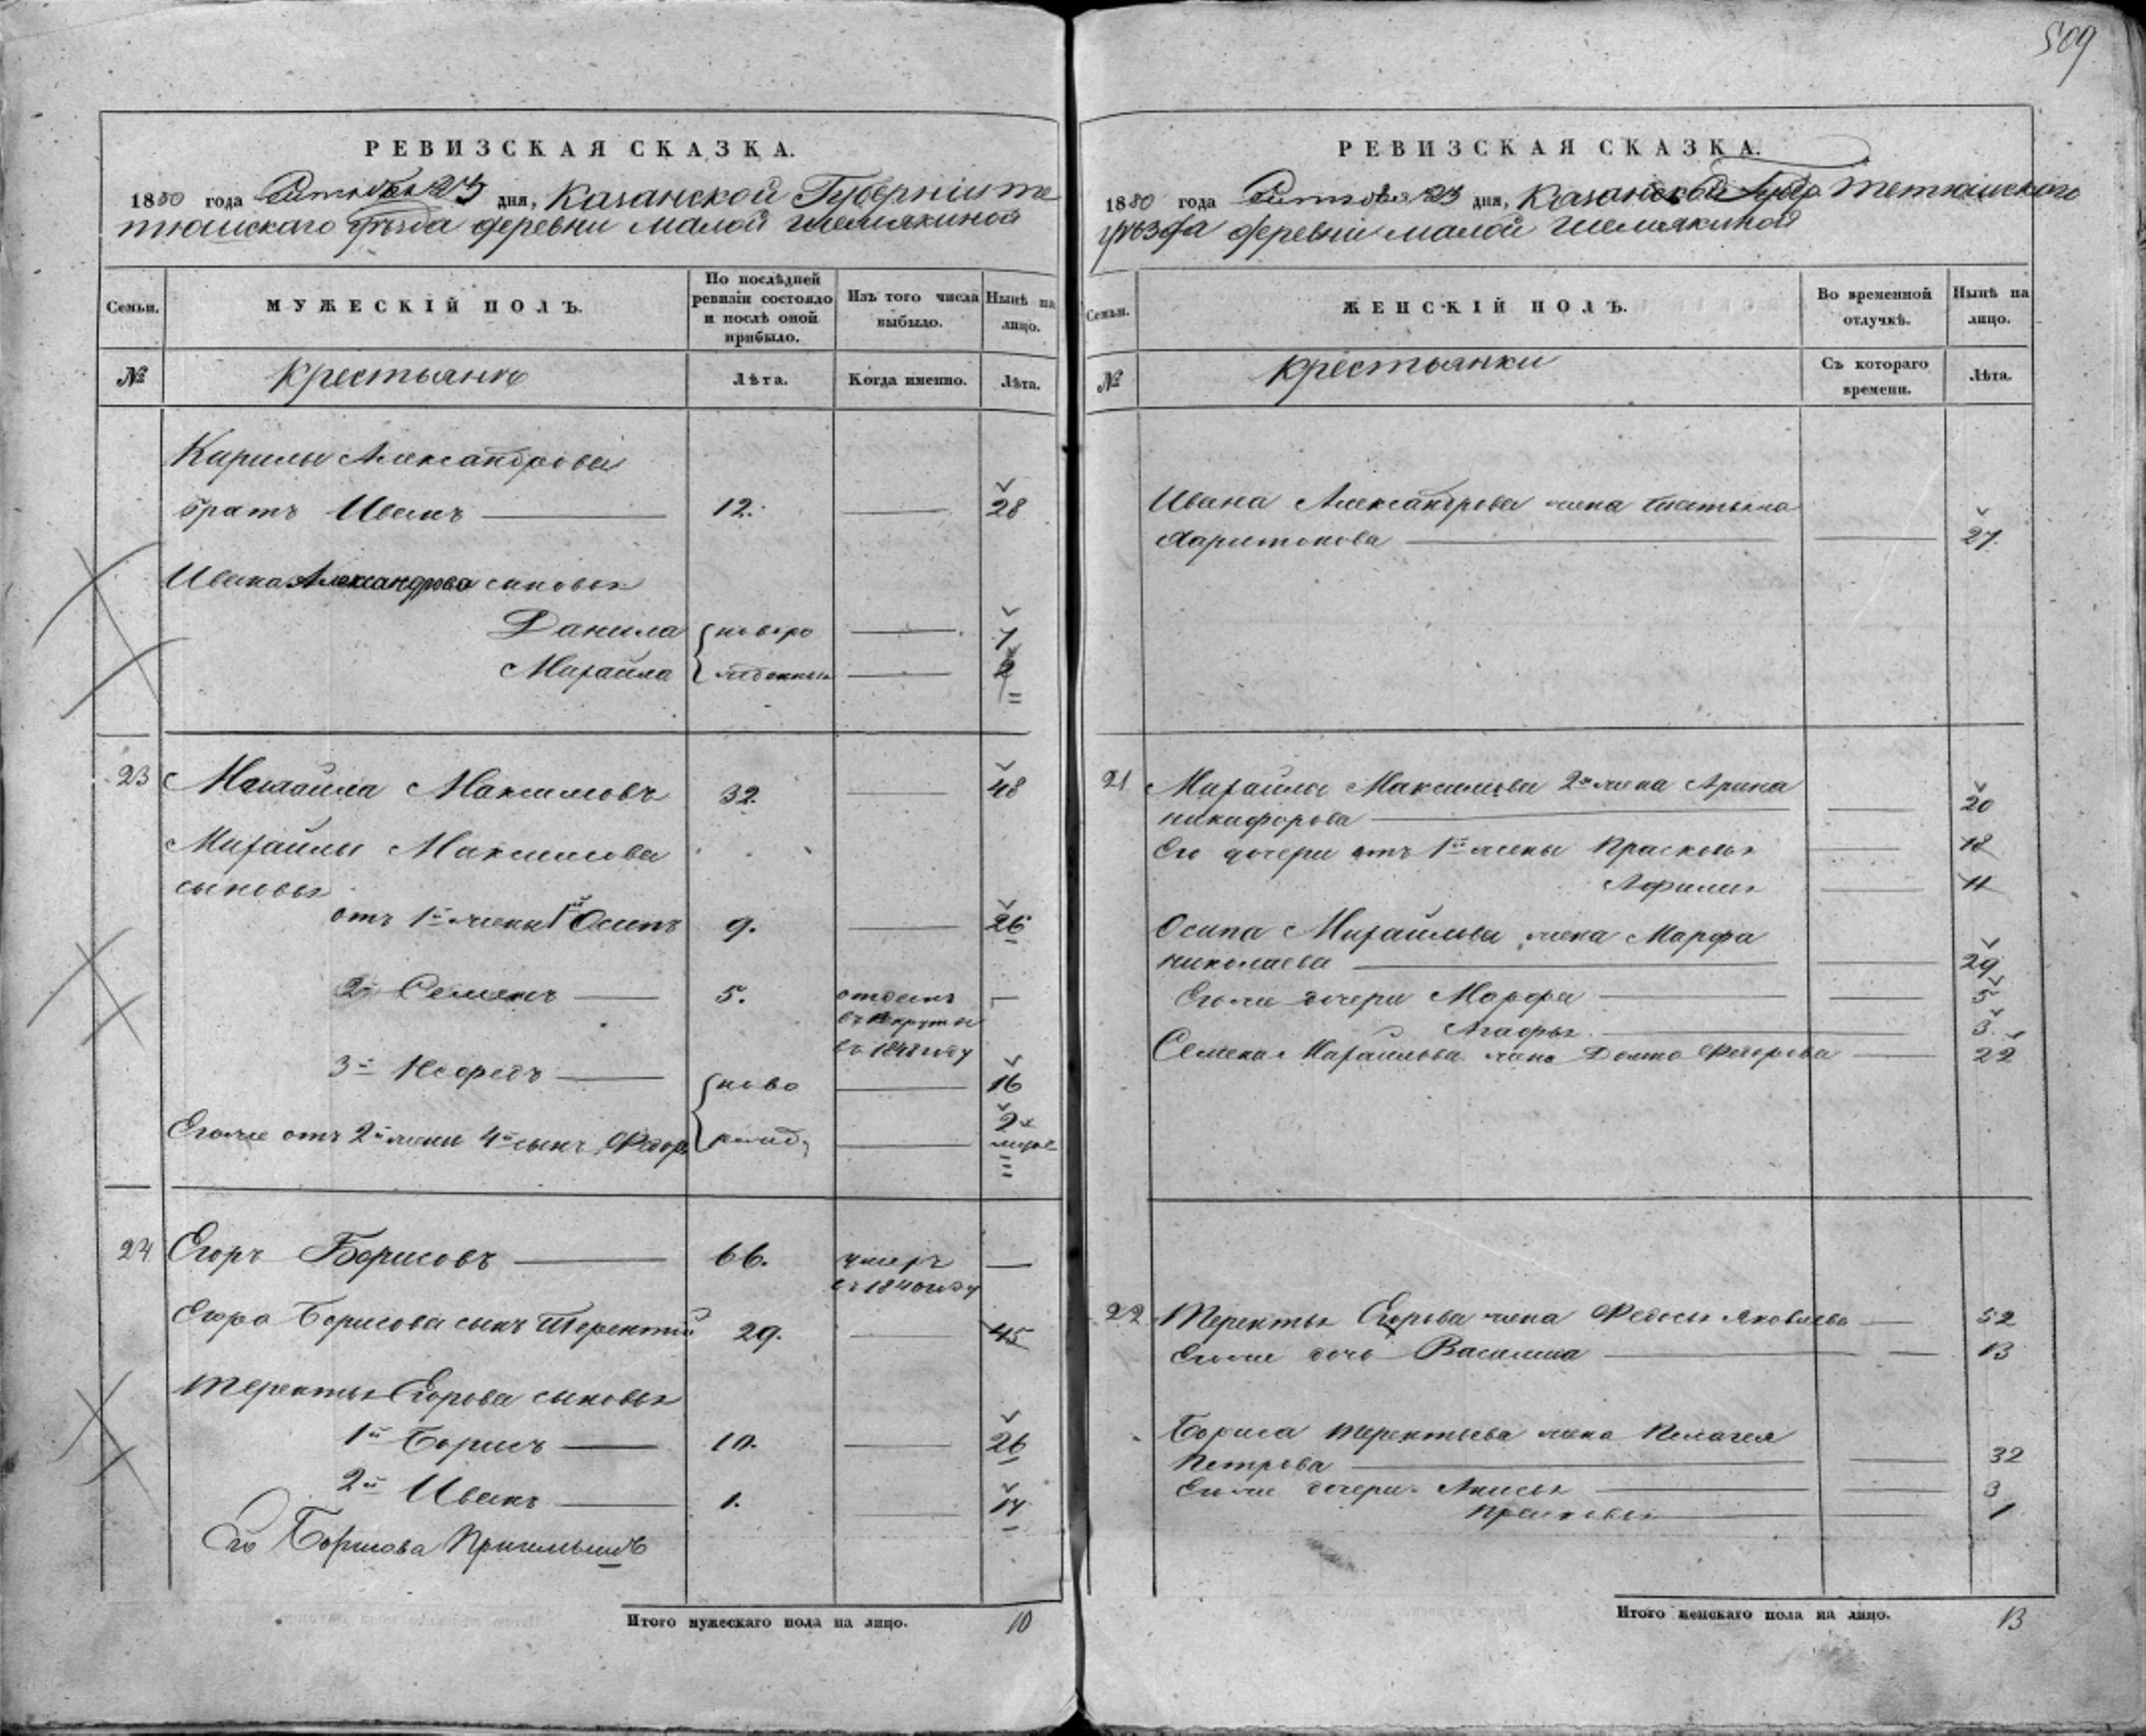 509
РЕВИЗСКАЯ СКАЗКА.
1850 года Октября 23 дня, Казанской Губерніи Те
тюшскаго Уѣзда деревни Малой Шемякиной
Семьи.
МУЖЕСКІЙ ПОЛЪ.
По послѣдней ревизіи состояло и послѣ оной прибыло.
Изъ того числа выбыло.
Нынѣ на лицо.
№
Крестьянъ
Лѣта.
Когда именно.
Лѣта.
Кирилы Александрова
братъ Иванъ 12. 28
Ивана Александрова сыновья
Данила новоро 7
Михайла жденныя 2
23 Михайла Максимовъ 32. 48
Михайлы Максимова
сыновья
отъ 1й жены 1й Осипъ 9. 26
2й Семенъ 5. отданъ
въ рекруты
въ 1848 году
3й Нефедъ ново 16
Егоже отъ 2й жены 4й сынъ Федор. рожд. 2х
24 Егоръ Борисовъ 66. умеръ
въ 1840 году
Егора Борисова сынъ Терентій 29. 45
Терентья Егорова сыновья
1й Борисъ 10. 26
2й Иванъ 1. 17
Борисова
Итого мужескаго пола на лицо. 10
РЕВИЗСКАЯ СКАЗКА.
1850 года Октября 23 дня, Казанской Губер. Тетюшскаго
уѣзда деревни Малой Шемякиной
Семьи.
ЖЕНСКІЙ ПОЛЪ.
Во временной отлучкѣ.
Нынѣ на лицо.
№
Крестьянки
Съ котораго времени.
Лѣта.
Ивана Александрова жена Татьяна
Харитонова 27.
21 Михайлы Максимова 2я жена Арина
Никифорова 20
Его дочери отъ 1й жены Прасковья 18
Афимья 11
Осипа Михайлова жена Марфа
Николаева 29
Егоже дочери Марфа 5
Агафья 3
Семена Михайлова жена Домна Федорова 22
22 Терентья Егорова жена Федосья Яковлева 52
Егоже дочь Василиса 13
Бориса Терентьева жена Пелагея
Петрова 32
Егоже дочери Анисья 3
Прасковья 1
Итого женскаго пола на лицо. 13